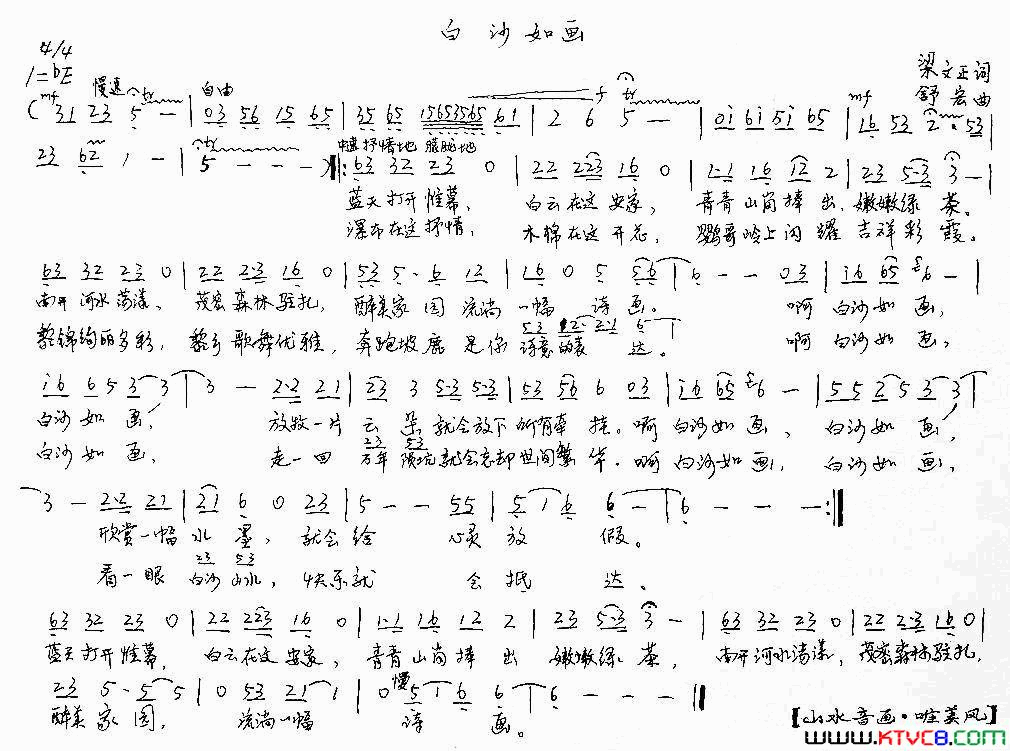 白沙如画
4/4
1=bE
梁文正词
舒宏曲
慢速 自由
(31 23 5 - | 03 56 15 65 | 35 65 15653565 61 | 2 6 5 - | 0i 6i 5i 65 | 16 53 2 · 53
23 62 1 - | 5 - - - ) ‖: 63 32 23 0 | 22 223 16 0 | 1·1 16 12 2 | 23 5·3 3 - |
抒情地 朦胧地
蓝天打开帷幕, 白云在这安家, 青青山岗捧出, 嫩嫩绿茶。
瀑布在这抒情, 木棉在这开花, 鹦哥岭上闪耀吉祥彩霞。
63 32 23 0 | 22 2·3 16 0 | 53 5·6 12 | 16 0 5 56 | 6 - - 03 | i6 65 6 - |
南开河水荡漾, 茂密森林驻扎, 醉美家园流淌一幅诗画。 啊白沙如画,
53 12·2·1 6
黎锦绚丽多彩, 黎乡歌舞优雅, 奔跑坡鹿是你诗意的表达。 啊白沙如画,
i6 6 5 3 3 | 3 - 2·2 21 | 23 3 5·3 5·3 | 53 56 6 03 | i6 65 6 - | 5 5 2 5 3 3 |
白沙如画, 放牧一片云朵就会放下所有牵挂。啊白沙如画, 白沙如画,
23 53
白沙如画, 走一回万年 就会忘却世间繁华。啊白沙如画, 白沙如画,
3 - 2·2 21 | 21 6 0 23 | 5 - - 55 | 5 1 6 6 | 6 - - - :‖
欣赏一幅水墨, 就会给心灵放假。
23 53
看一眼白沙山水, 快乐就会抵达。
63 32 23 0 | 22 223 16 0 | 1·1 16 12 2 | 23 5·3 3 - | 63 32 23 0 | 22 2·3 16 0 |
蓝天打开帷幕, 白云在这安家, 青青山岗捧出嫩嫩绿茶, 南开河水荡漾, 茂密森林驻扎,
慢
23 5·5 5 | 0 53 21 1 | 0 5 1 6 6 | 6 - - - ‖
醉美家园, 流淌一幅诗画。
【山水音画·唯美风】
WWW.KTVC8.COM